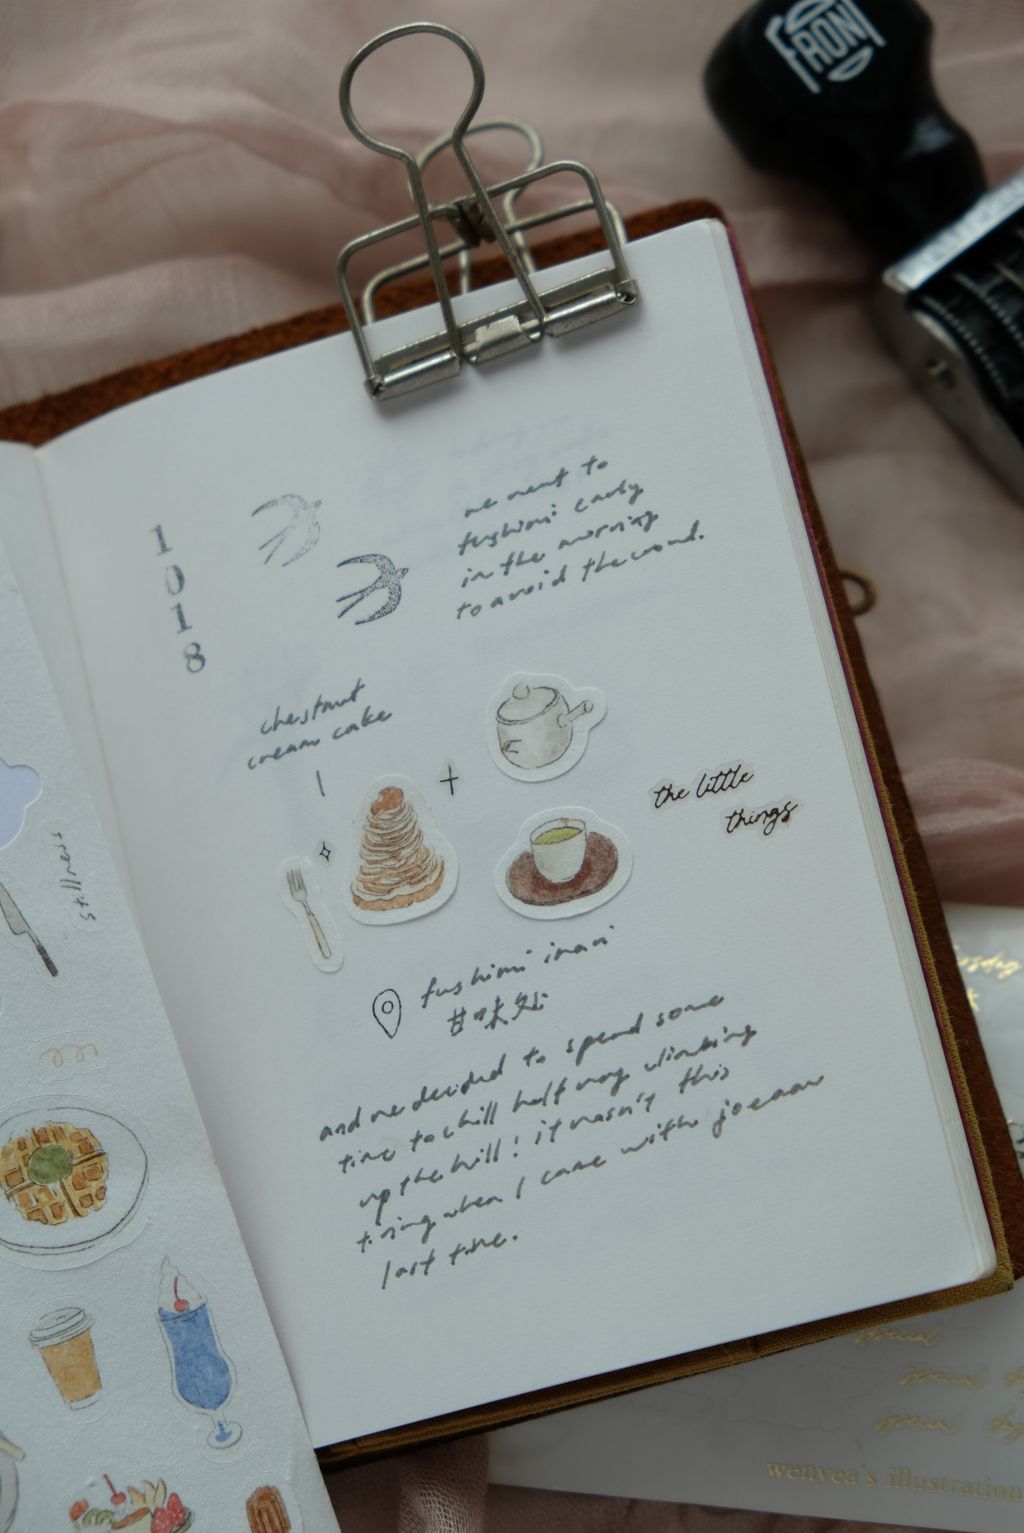 FRONT
1
0
1
8
we went to
fushimi early
in the morning
to avoid the crowd.
chestnut
cream cake
the little
things
stillness
fushimi inari
甘味处
and we decided to spend some
time to chill half way climbing
up the hill! it wasn't this
tiring when I came with joeann
last time.
special
special
special
wenyea's illustration